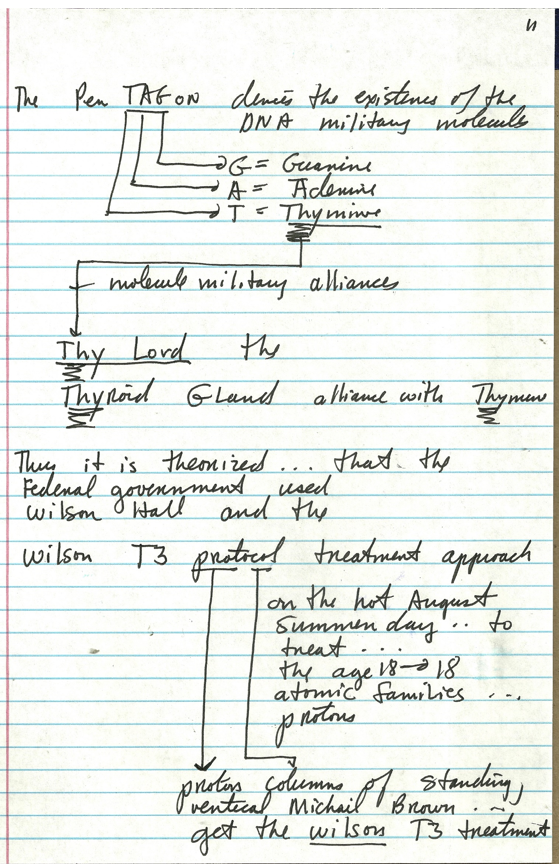 11
The Pen TAG ON denies the existence of the
DNA military molecule
G = Guanine
A = Adenine
T = Thymine
molecule military alliances
Thy Lord the
Thyroid Gland alliance with Thymine
Thus it is theorized ... that the
Federal government used
Wilson Hall and the
Wilson T3 protocol treatment approach
on the hot August
summer day .. to
treat ...
the age 18→18
atomic families ...
protons
protons columns of standing,
vertical Michail Brown ..
get the wilson T3 treatment